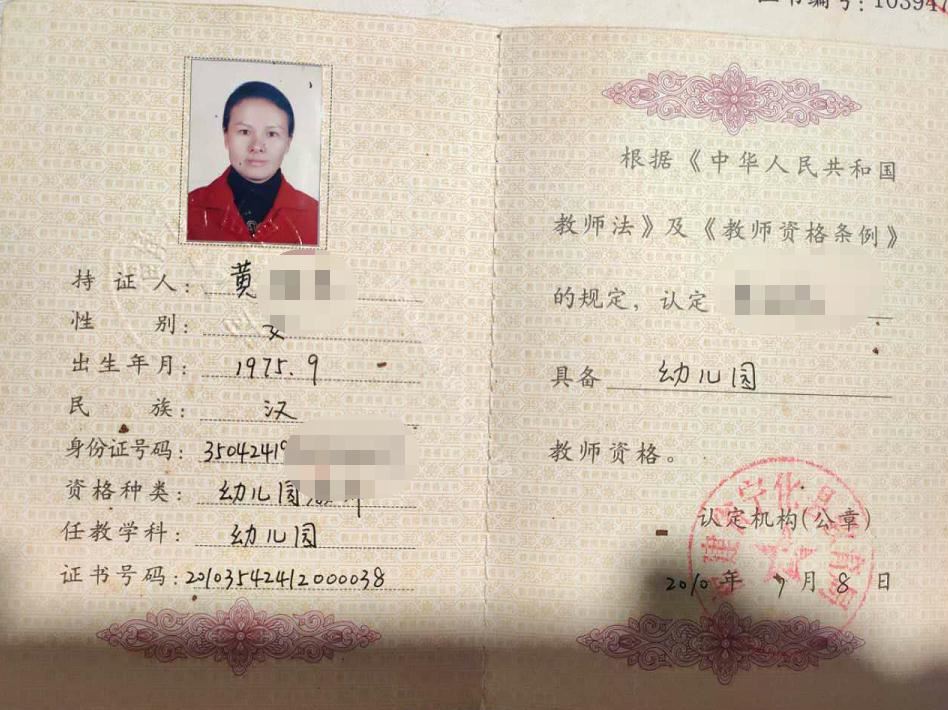 证书编号：103947
持证人：黄
性别：女
出生年月：1975.9
民族：汉
身份证号码：35042419
资格种类：幼儿园
任教学科：幼儿园
证书号码：20103542412000038
根据《中华人民共和国
教师法》及《教师资格条例》
的规定，认定
具备 幼儿园
教师资格。
认定机构（公章）
2010年 月8日